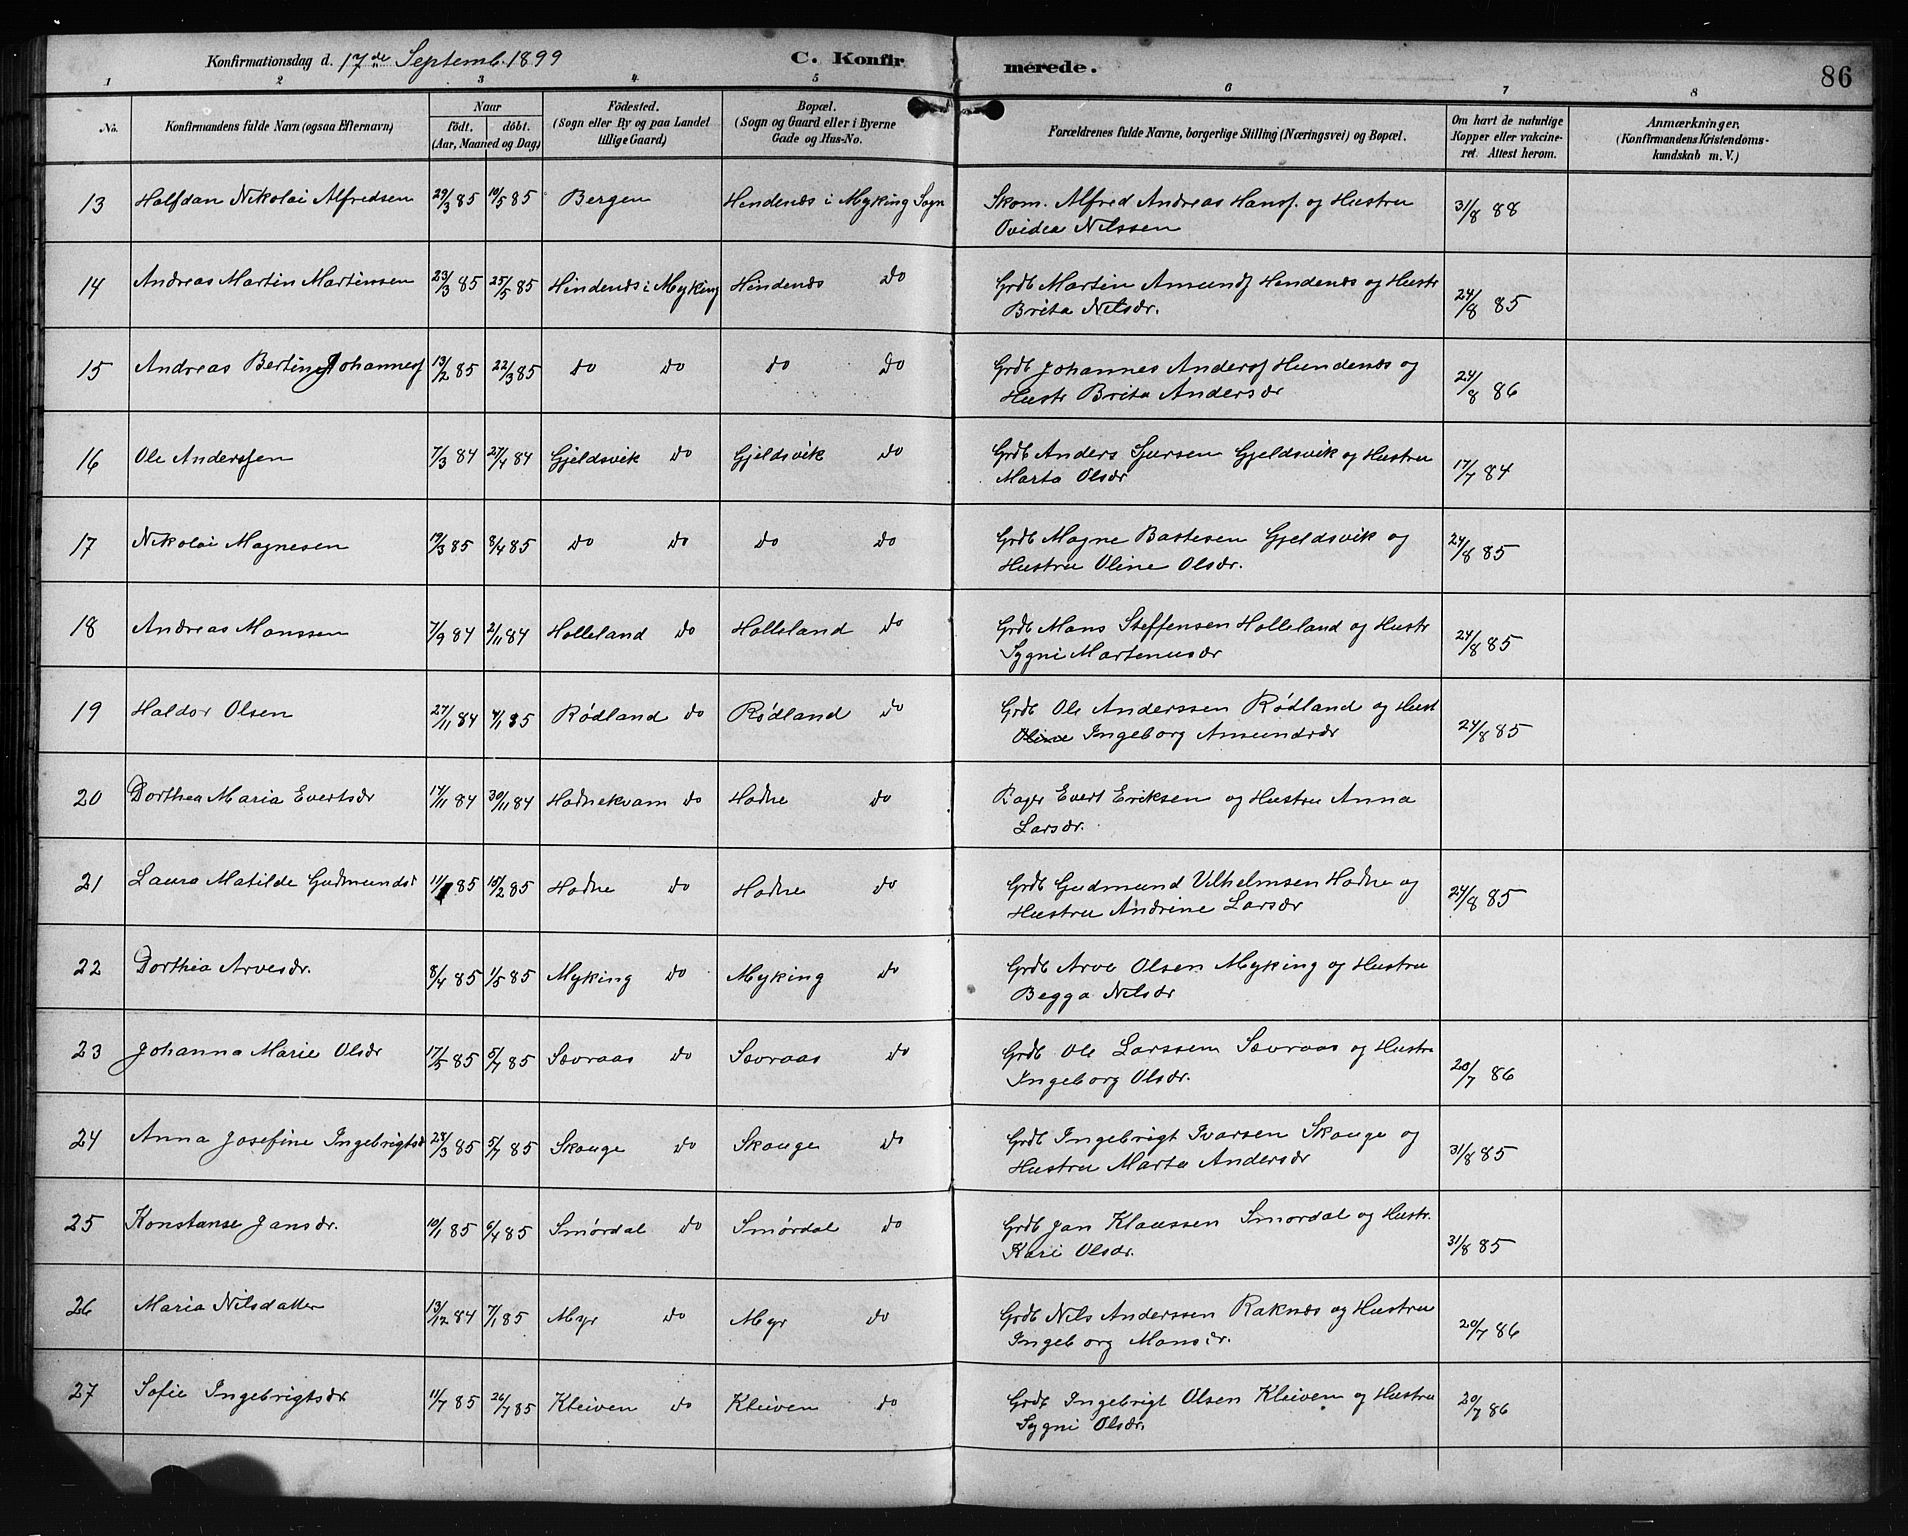 Konfirmationsdag d. 17de Septemb. 1899 C. Konfirmerede. 86
1 2 3 4 5 6 7 8
No. Konfirmandens fulde Navn (ogsaa Efternavn) Naar født. døbt. (Aar, Maaned og Dag) Fødested. (Sogn eller By og paa Landet tillige Gaard) Bopæl. (Sogn og Gaard eller i Byerne Gade og Hus-No. Forældrenes fulde Navne, borgerlige Stilling (Næringsvei) og Bopæl. Om havt de naturlige Kopper eller vakcineret. Attest herom. Anmærkninger. (Konfirmandens Kristendomskundskab m. V.)
13 Halfdan Nikolai Alfredsen 29/3 85 10/5 85 Bergen Hindenæs i Myking Sogn Skom. Alfred Andreas Hansf. og Hustru 31/8 88
Ovidea Nilssen
14 Andreas Martin Martinssen 23/3 85 25/5 85 Hindenæs i Myking Hindenæs do Grdb Martin Amundf Hindenæs og Hustr 24/8 85
Brita Nilsdr.
15 Andreas Bertinus Johannesf 13/2 85 22/3 85 do do do do Grdb Johannes Andersf Hindenæs og 24/8 86
Hustr Brita Andersdr
16 Ole Anderssen 7/3 84 27/4 84 Gjeldsvik do Gjeldsvik do Grdb Anders Sjursen Gjeldsvik og Hustru 17/7 84
Marta Olsdr
17 Nikolai Magnesen 19/3 85 8/4 85 do do do do Grdb Magne Bastesen Gjeldsvik og 24/8 85
Hustru Oline Olsdr.
18 Andreas Monssen 7/9 84 2/11 84 Holleland do Holleland do Grdb Mons Steffensen Holleland og Hustr 24/8 85
Sygni Martenusdr
19 Haldor Olsen 27/11 84 4/1 85 Rødland do Rødland do Grdb Ole Anderssen Rødland og Hust 24/8 85
Oline Ingeborg Amundsdr
20 Dorthea Maria Evertsdr 17/11 84 30/11 84 Hodnekvam do Hodne do Bager Evert Eriksen og Hustru Anna
Larsdr.
21 Laura Matilde Gudmundsd 11/1 85 15/2 85 Hodne do Hodne do Grdb Gudmund Vilhelmsen Hodne og 24/8 85
Hustru Andrine Larsdr
22 Dorthea Arvesdr. 8/4 85 1/5 85 Myking do Myking do Grdb Arve Olsen Myking og Hustru
Begga Nilsdr
23 Johanna Marie Olsdr 17/5 85 5/7 85 Sævraas do Sævraas do Grdb Ole Larssen Sævraas og Hustru 20/7 86
Ingeborg Olsdr.
24 Anna Josefine Ingebrigtsd 28/3 85 5/7 85 Skouge do Skouge do Grdb Ingebrigt Ivarsen Skouge og 31/8 85
Hustru Marta Andersdr
25 Konstanse Jansdr. 10/1 85 6/4 85 Smørdal do Smørdal do Grdb Jan Klaussen Smørdal og Hustr. 31/8 85
Kari Olsdr.
26 Maria Nilsdatter 13/12 84 7/1 85 Myr do Myr do Grdb Nils Anderssen Raknæs og Hustru 20/7 86
Ingeborg Monsdr.
27 Sofie Ingebrigtsdr 11/7 85 26/7 85 Kleiven do Kleiven do Grdb Ingebrigt Olsen Kleiven og Hustru 20/7 86
Sygni Olsdr.